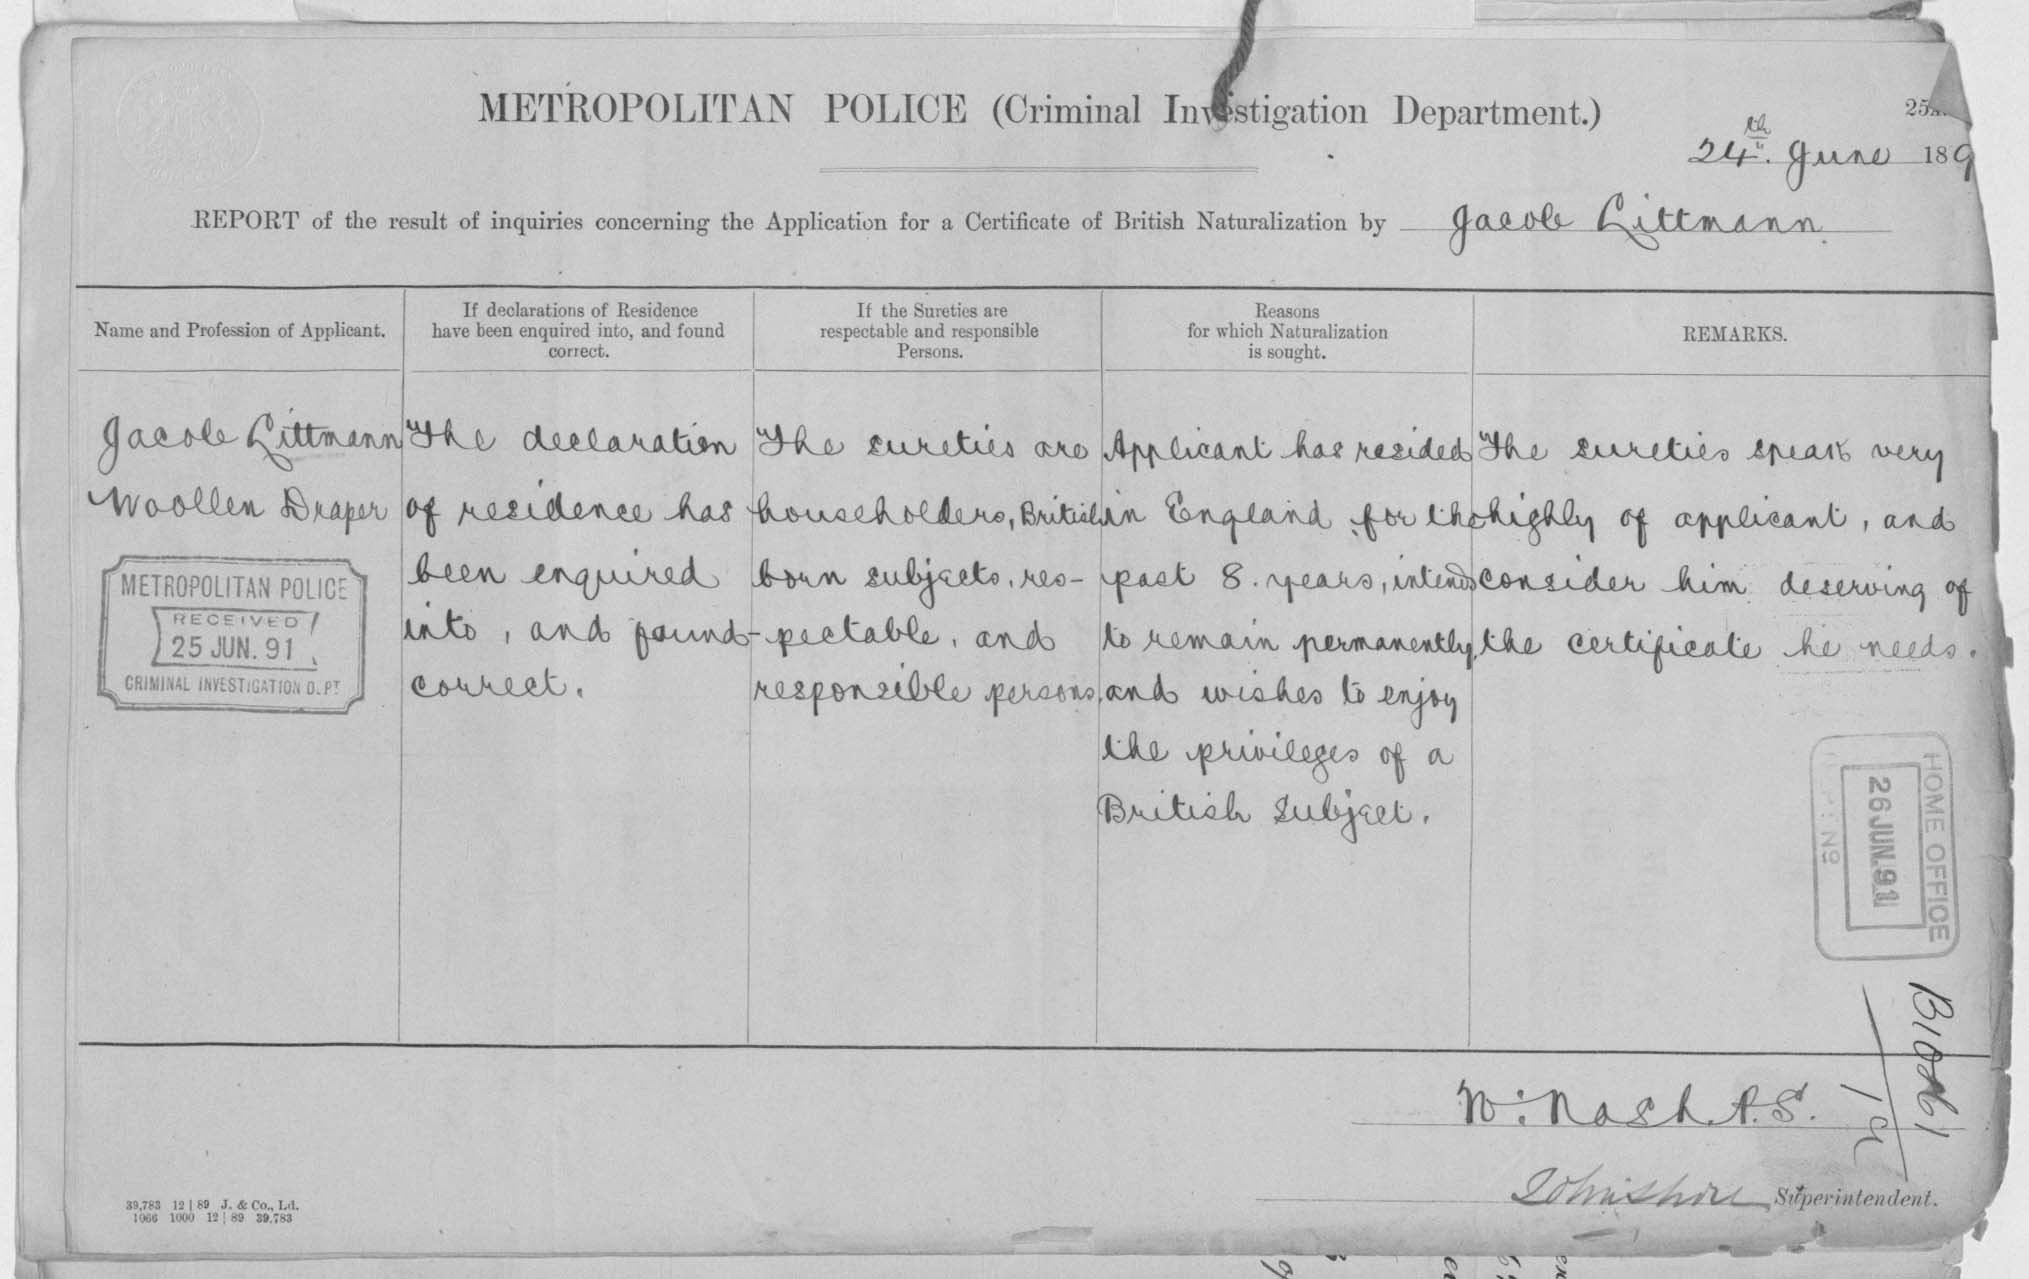 METROPOLITAN POLICE (Criminal Investigation Department.)
24th. June 189
REPORT of the result of inquiries concerning the Application for a Certificate of British Naturalization by Jacob Littmann
Name and Profession of Applicant.
If declarations of Residence
have been enquired into, and found
correct.
If the Sureties are
respectable and responsible
Persons.
Reasons
for which Naturalization
is sought.
REMARKS.
Jacob Littmann
Woollen Draper
METROPOLITAN POLICE
RECEIVED
25 JUN. 91
CRIMINAL INVESTIGATION DEPT
The declaration
of residence has
been enquired
into, and found
correct.
The sureties are
householders, British
born subjects, res-
pectable, and
responsible persons.
Applicant has resided
in England for the
past 8. years, intends
to remain permanently,
and wishes to enjoy
the privileges of a
British Subject.
The sureties speak very
highly of applicant, and
consider him deserving of
the certificate he needs.
HOME OFFICE
26 JUN. 91
No
W. Nash. P.S.
John Shore Superintendent.
39,783 12 | 89 J. & Co., Ld.
1066 1000 12 | 89 39.783